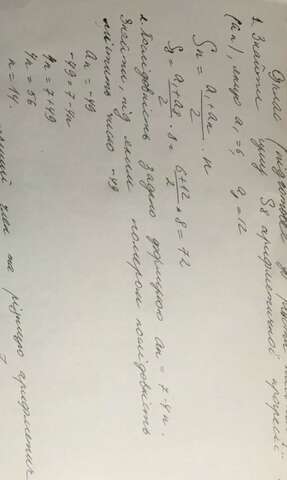 Усно (підготовка до
1. Знайти суму S8 арифметичної прогресії
(an), якщо a₁ = 6, a₈ = 12
Sn = (a₁ + an)/2 · n
S8 = (a₁ + a8)/2 · 8 = (6+12)/2 · 8 = 72
2. Послідовність задано формулою an = 7 - 4n.
Знайти, під яким номером послідовність
містить число -49
an = -49
-49 = 7 - 4n
4n = 7 + 49
4n = 56
n = 14.
член та різницю арифметич